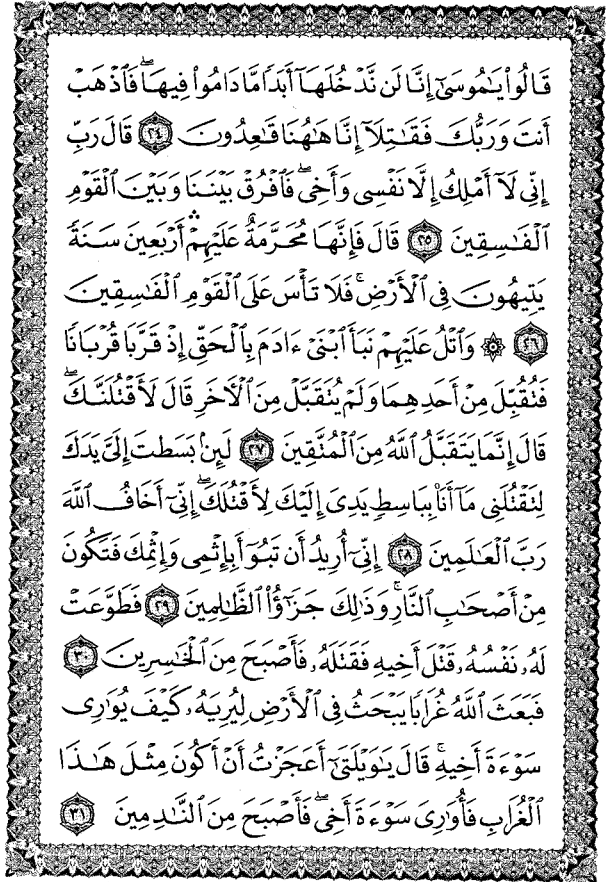 قَالُوا۟ يَـٰمُوسَىٰٓ إِنَّا لَن نَّدْخُلَهَآ أَبَدًا مَّا دَامُوا۟ فِيهَا ۖ فَٱذْهَبْ
أَنتَ وَرَبُّكَ فَقَـٰتِلَآ إِنَّا هَـٰهُنَا قَـٰعِدُونَ ٢٤ قَالَ رَبِّ
إِنِّى لَآ أَمْلِكُ إِلَّا نَفْسِى وَأَخِى ۖ فَٱفْرُقْ بَيْنَنَا وَبَيْنَ ٱلْقَوْمِ
ٱلْفَـٰسِقِينَ ٢٥ قَالَ فَإِنَّهَا مُحَرَّمَةٌ عَلَيْهِمْ ۛ أَرْبَعِينَ سَنَةً
يَتِيهُونَ فِى ٱلْأَرْضِ ۚ فَلَا تَأْسَ عَلَى ٱلْقَوْمِ ٱلْفَـٰسِقِينَ
٢٦ ۞ وَٱتْلُ عَلَيْهِمْ نَبَأَ ٱبْنَىْ ءَادَمَ بِٱلْحَقِّ إِذْ قَرَّبَا قُرْبَانًا
فَتُقُبِّلَ مِنْ أَحَدِهِمَا وَلَمْ يُتَقَبَّلْ مِنَ ٱلْـَٔاخَرِ قَالَ لَأَقْتُلَنَّكَ ۖ
قَالَ إِنَّمَا يَتَقَبَّلُ ٱللَّهُ مِنَ ٱلْمُتَّقِينَ ٢٧ لَئِنۢ بَسَطتَ إِلَىَّ يَدَكَ
لِتَقْتُلَنِى مَآ أَنَا۠ بِبَاسِطٍ يَدِىَ إِلَيْكَ لِأَقْتُلَكَ ۖ إِنِّىٓ أَخَافُ ٱللَّهَ
رَبَّ ٱلْعَـٰلَمِينَ ٢٨ إِنِّىٓ أُرِيدُ أَن تَبُوٓأَ بِإِثْمِى وَإِثْمِكَ فَتَكُونَ
مِنْ أَصْحَـٰبِ ٱلنَّارِ ۚ وَذَٰلِكَ جَزَٰٓؤُا۟ ٱلظَّـٰلِمِينَ ٢٩ فَطَوَّعَتْ
لَهُۥ نَفْسُهُۥ قَتْلَ أَخِيهِ فَقَتَلَهُۥ فَأَصْبَحَ مِنَ ٱلْخَـٰسِرِينَ ٣٠
فَبَعَثَ ٱللَّهُ غُرَابًا يَبْحَثُ فِى ٱلْأَرْضِ لِيُرِيَهُۥ كَيْفَ يُوَٰرِى
سَوْءَةَ أَخِيهِ ۚ قَالَ يَـٰوَيْلَتَىٰٓ أَعَجَزْتُ أَنْ أَكُونَ مِثْلَ هَـٰذَا
ٱلْغُرَابِ فَأُوَٰرِىَ سَوْءَةَ أَخِى ۖ فَأَصْبَحَ مِنَ ٱلنَّـٰدِمِينَ ٣١